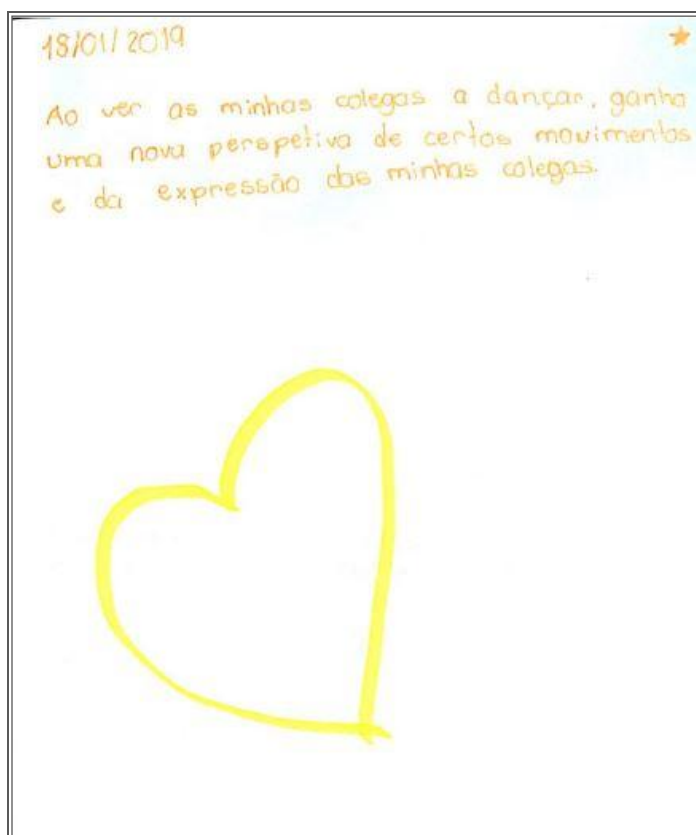 18/01/2019
Ao ver as minhas colegas a dançar, ganho
uma nova perspetiva de certos movimentos
e da expressão das minhas colegas.